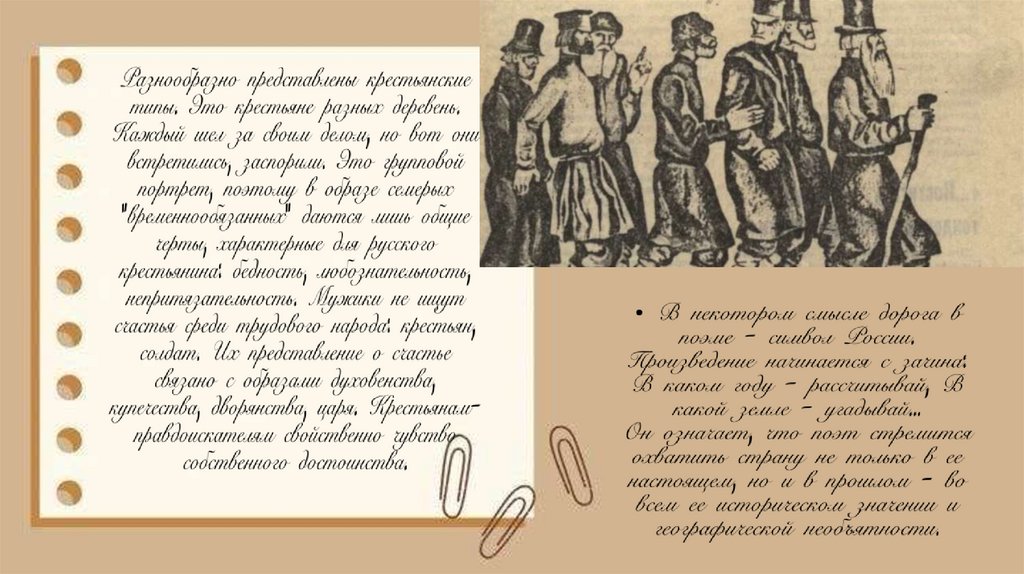 Разнообразно представлены крестьянские
типы. Это крестьяне разных деревень.
Каждый шел за своим делом, но вот они
встретились, заспорили. Это групповой
портрет, поэтому в образе семерых
"временнообязанных" даются лишь общие
черты, характерные для русского
крестьянина: бедность, любознательность,
непритязательность. Мужики не ищут
счастья среди трудового народа: крестьян,
солдат. Их представление о счастье
связано с образами духовенства,
купечества, дворянства, царя. Крестьянам-
правдоискателям свойственно чувство
собственного достоинства.
• В некотором смысле дорога в
поэме - символ России.
Произведение начинается с зачина:
В каком году - рассчитывай, В
какой земле - угадывай...
Он означает, что поэт стремится
охватить страну не только в ее
настоящем, но и в прошлом - во
всем ее историческом значении и
географической необъятности.